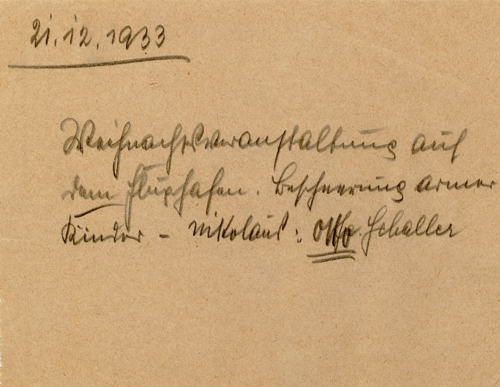 21.12.1933
Weihnachtsveranstaltung auf
dem Flughafen. Bescheerung armer
Kinder – Nikolaus: Otto Schaller